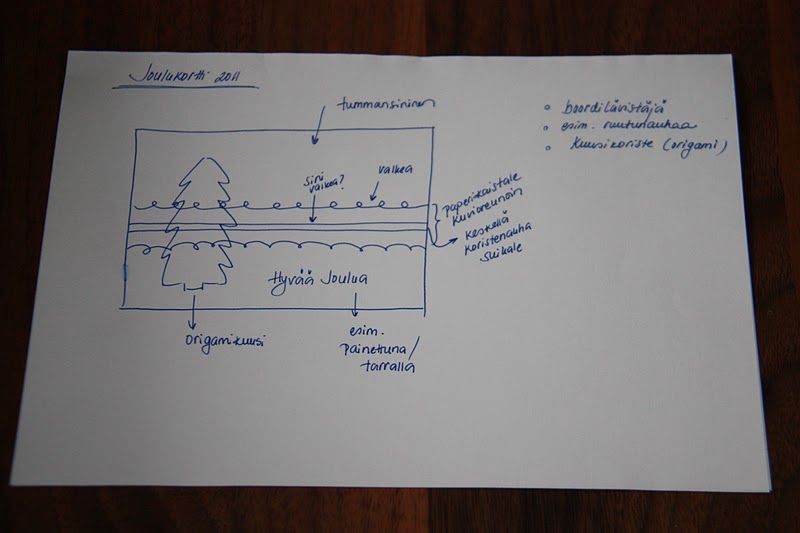 Joulukortti 2011
tummansininen
boordilävistäjä
esim. ruutunauhaa
kuusikoriste (origami)
sini
valkea?
valkea
paperikaistale
kuvioreunoin
keskellä
koristenauha
suikale
Hyvää Joulua
origamikuusi
esim.
painettuna/
tarralla